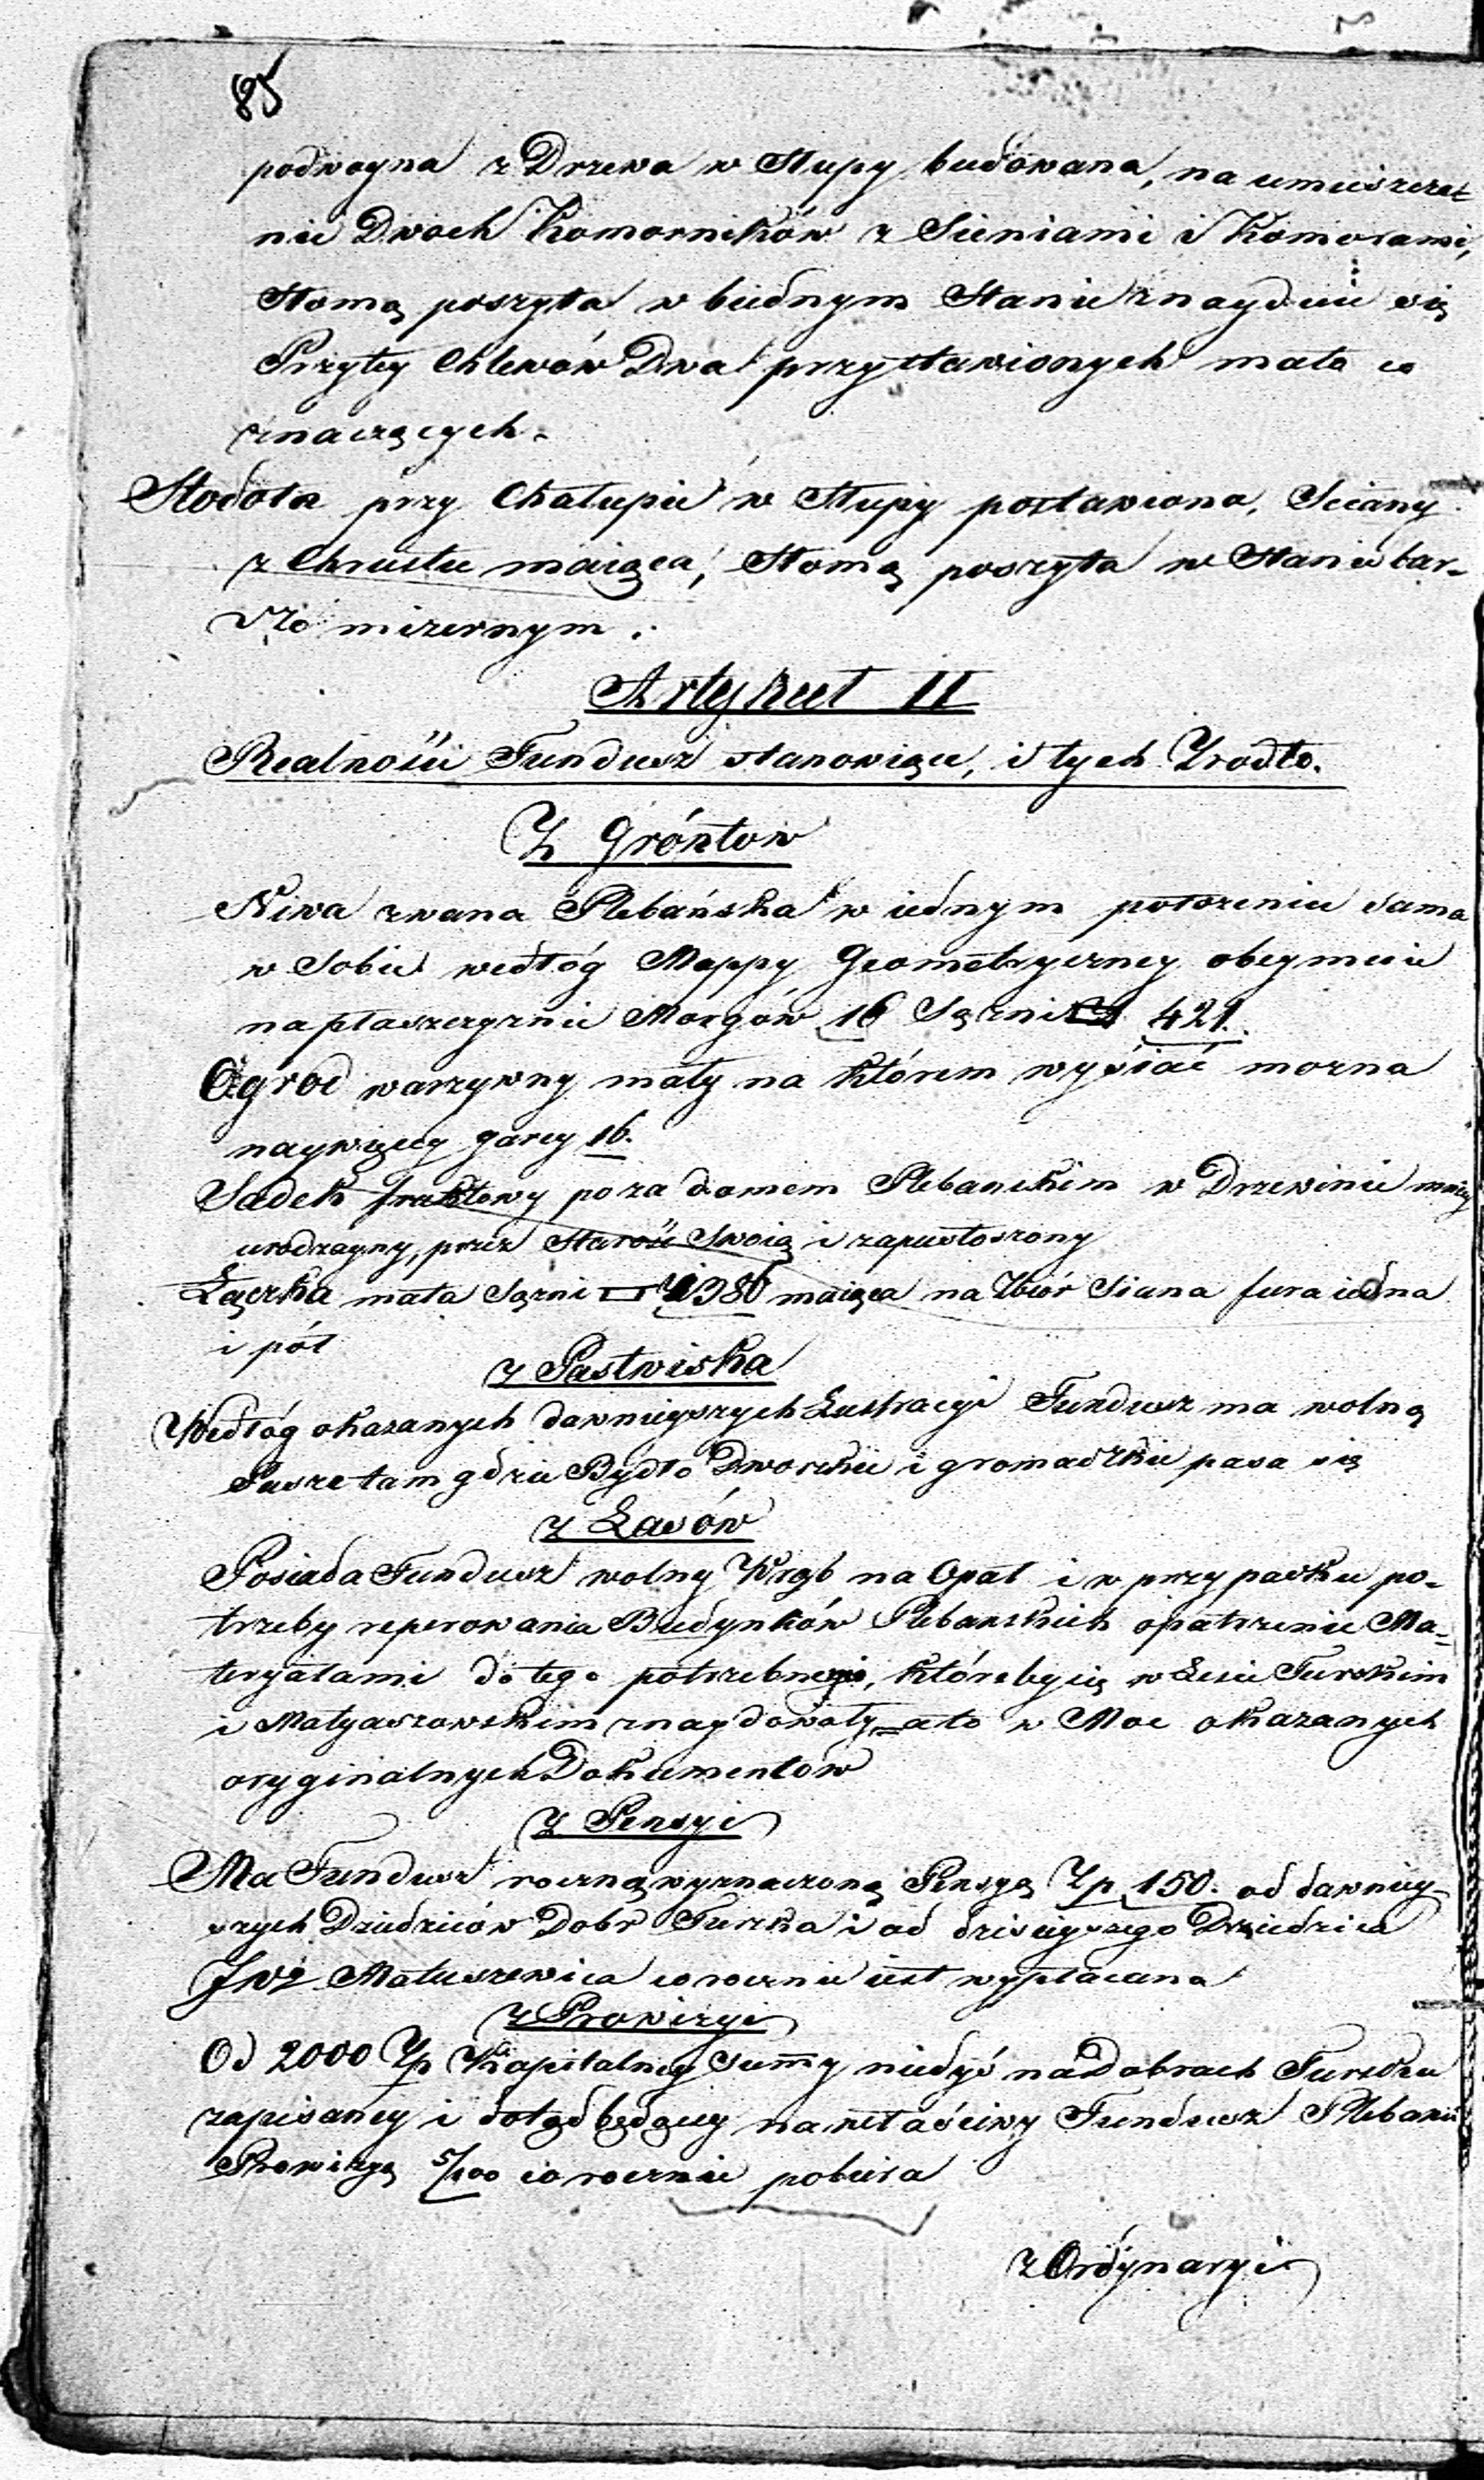 85
podwoyna z Drzewa w Słupy budowana, na umieszcze¬
nie Dwoch Komorników z Sieniami i Komorami,
Słomą poszyta w biednym Stanie znayduie się
Przytey Chlewów Dwa przystawionych mało co
znaczących.
Stodoła przy Chałupie w Słupy postawiona, Sciany
z Chrustu maiąca, Słomą poszyta w Stanie bar-
dzo mizernym.
Artykuł II
Realności Fundusz stanowiące, i tych Zrodło.
Z Gróntow
Niwa zwana Plebańska w iednym położeniu sama
w Sobie wedłóg Mappy Geometryczney obeymuie
napłaszczyznie Morgów 16 Sążni □ 421.
Ogrod warzywny mały na którem wysiać mozna
naywięcey garcy 16.
Sadek fruktowy poza domem Plebanskim w Drzewinie mniey
urodzayny, przez Starość Swoią i zapustoszony
Łączka mała Sążni □ 1386 maiąca na Zbiór Siana fura iedna
i pół
z Pastwiska
Wedłóg okazanych dawnieyszych Lustracyi Fundusz ma wolną
Pasze tam gdzie Bydło Dworskie i gromadzkie pasa się
z Lasów
Posiada Fundusz wolny Wrąb na Opał i w przypadku po-
trzeby reperowania Budynków Plebanskich opatrzenie Ma-
teryałami do tego potrzebnemi, któreby się w Lesie Turskim
i Matyaszowskim znaydowały = a to w Moc okazanych
oryginalnych Dokumentów
Z Pensyi
Ma Fundusz roczną wyznaczoną Pensyą Zp 150. od dawniey
szych Dziedziców Dobr Turska i od dzisieyszego Dziedzica
JWo Matuszewica corocznie iest wypłacana
z Prowizyi
Od 2000 Zp Kapitalney Summy niedyś na Dobrach Tursku
zapisaney i dotąd będącey na właściwy Fundusz Plebanii
Prowizyą 5/100 corocznie pobiera
z Ordynaryi